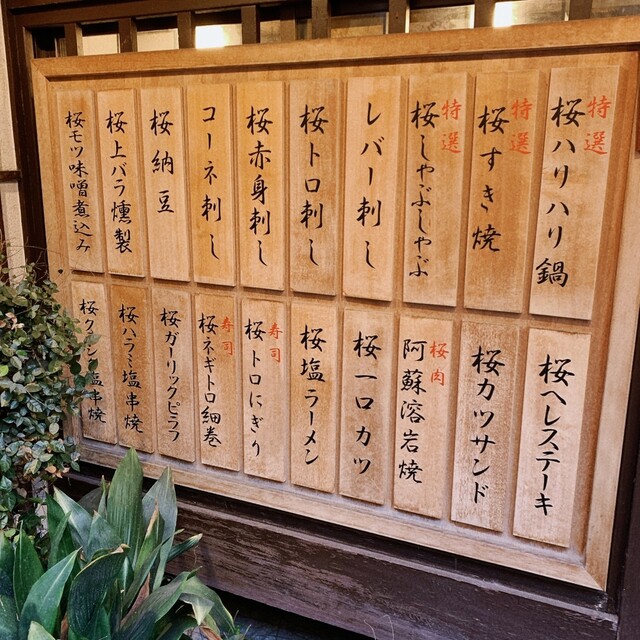 特選
桜ハリハリ鍋
特選
桜すき焼
特選
桜しゃぶしゃぶ
レバー刺し
桜トロ刺し
桜赤身刺し
コーネ刺し
桜納豆
桜上バラ燻製
桜モツ味噌煮込み
桜ヘレステーキ
桜カツサンド
桜肉
阿蘇溶岩焼
桜一口カツ
桜塩ラーメン
寿司
桜トロにぎり
寿司
桜ネギトロ細巻
桜ガーリックピラフ
桜ハラミ塩串焼
塩串焼